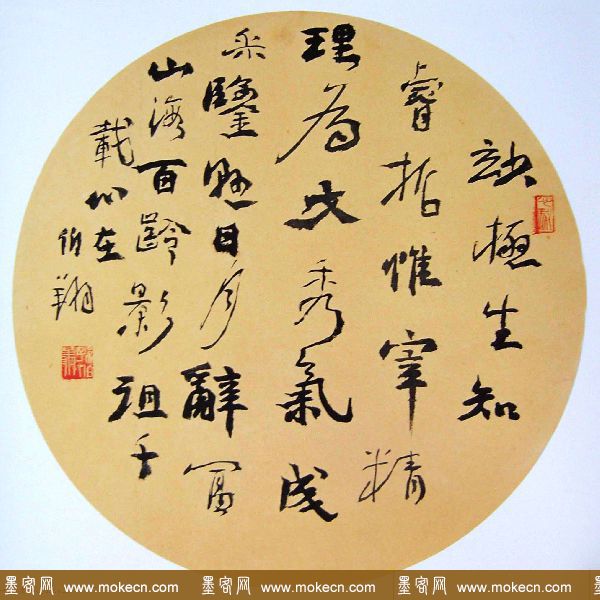 妙極生知
睿哲惟宰精
理為文秀氣成
采鑒懸日月辭富
山海百齡影徂千
載心在
伯翔
墨客网 www.mokecn.com 墨客网 www.mokecn.com 墨客网 www.mokecn.com 墨客网